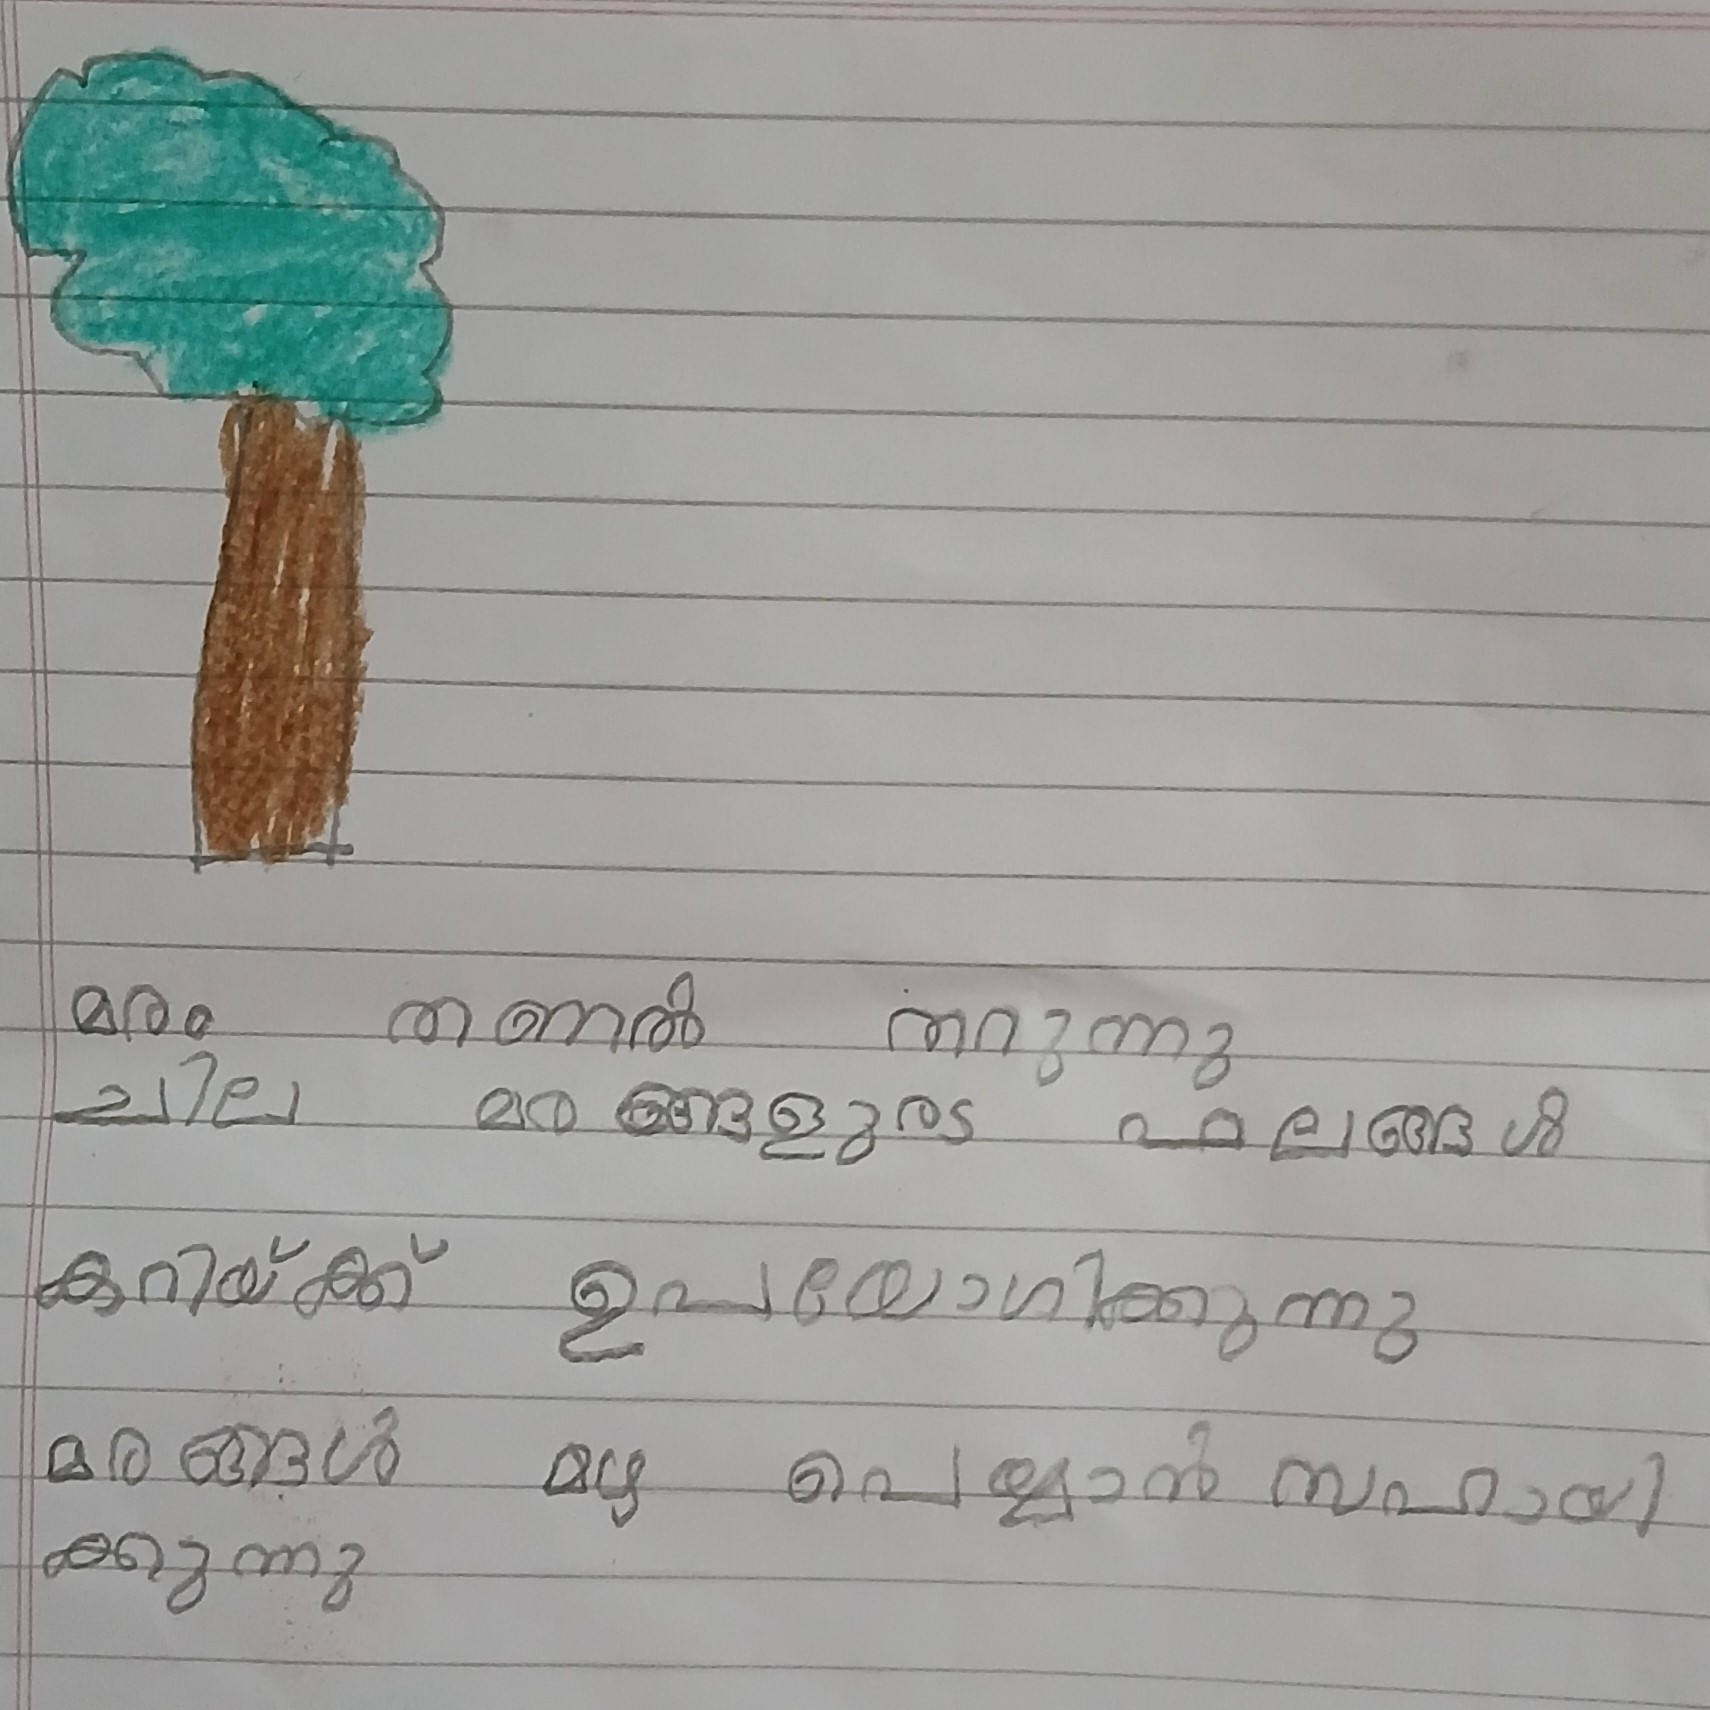 മരം തണൽ തറുന്നു
ചില മരങ്ങളുരട ഫലങ്ങൾ
കറിയ്ക്ക് ഉപയോഗിക്കുന്നു
മരങ്ങൾ മഴ പെയ്യാൻ സഹായി
ക്കുന്നു